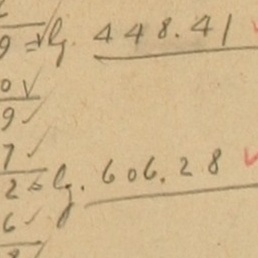 9 = lg. 448.41
0
9
7
2 = lg. 606.28
6